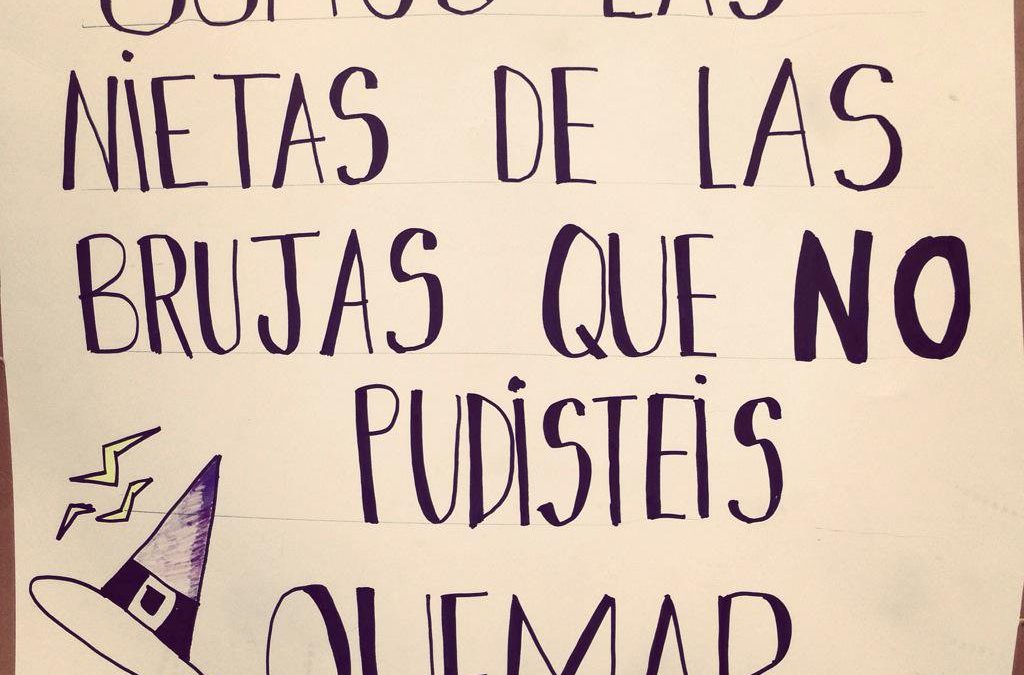 SOMOS LAS
NIETAS DE LAS
BRUJAS QUE NO
PUDISTEIS
QUEMAR